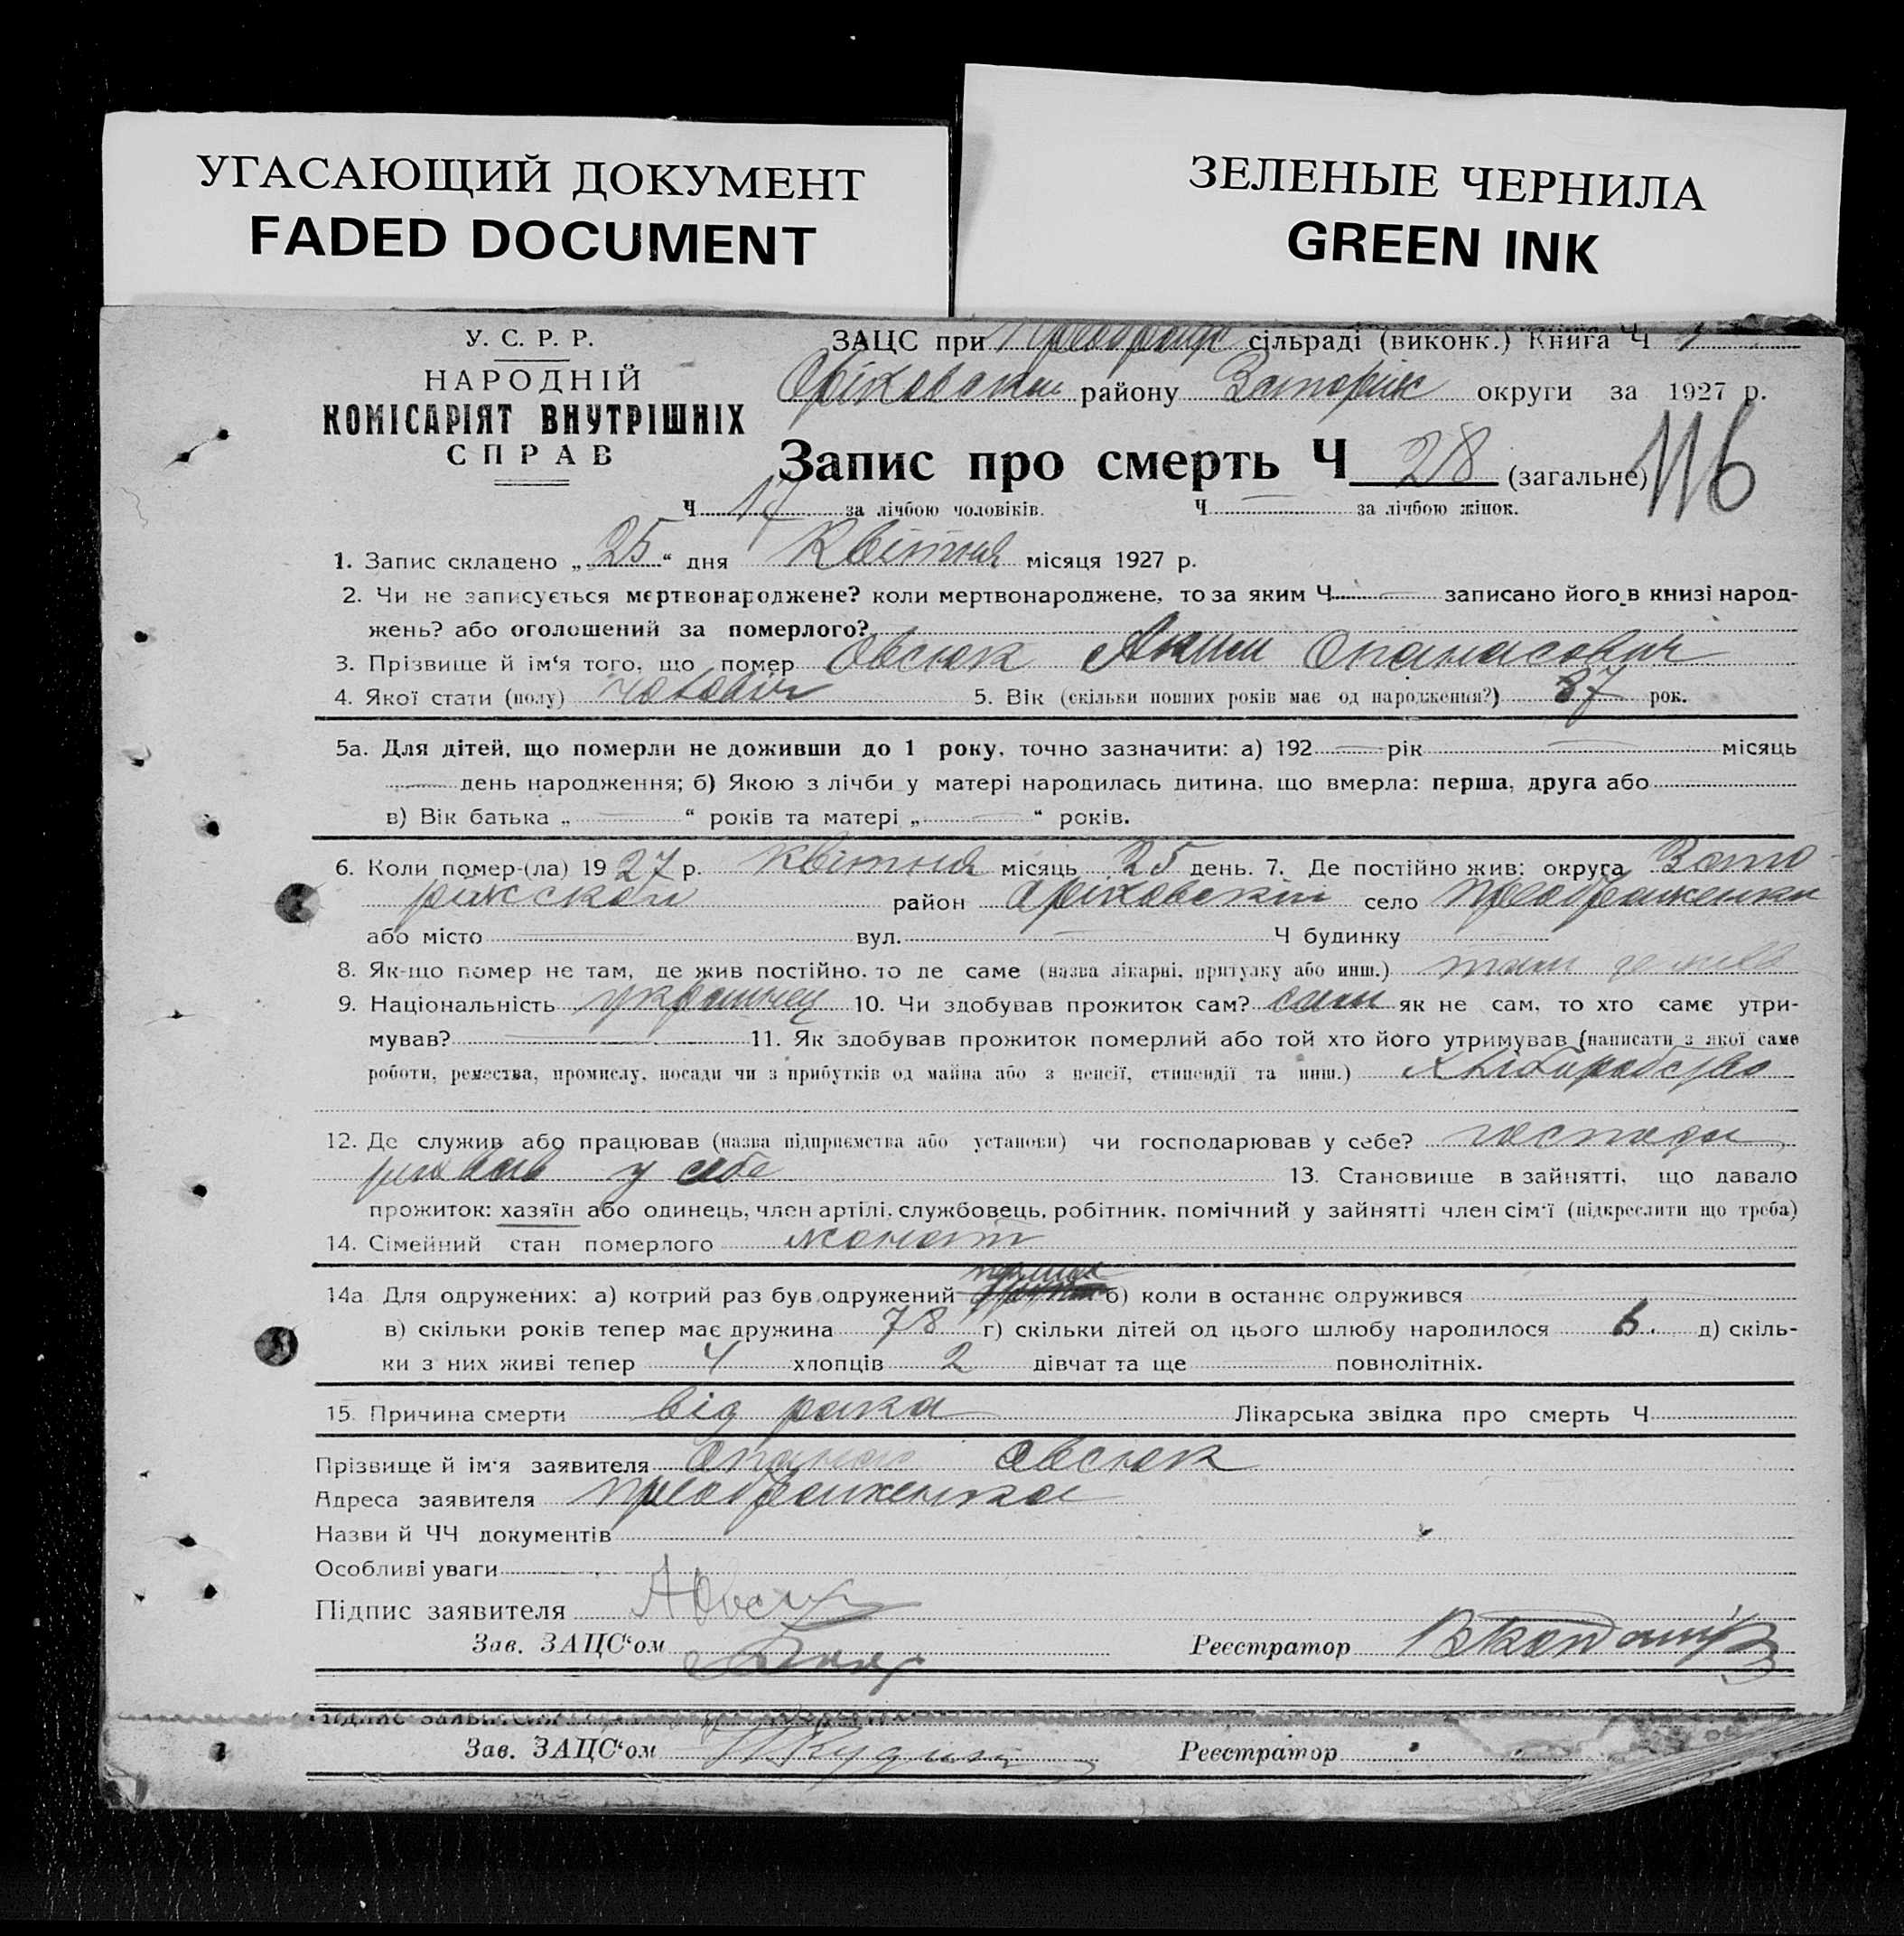 УГАСАЮЩИЙ ДОКУМЕНТ
FADED DOCUMENT
ЗЕЛЕНЫЕ ЧЕРНИЛА
GREEN INK
У. С. Р. Р.
НАРОДНІЙ
КОМІСАРІЯТ ВНУТРІШНІХ
СПРАВ
ЗАЦС при Преображ сільраді (виконк.) Книга Ч 1
Оріховский району Запоріж округи за 1927 р.
Запис про смерть Ч 28 (загальне) 116
Ч 17 за лічбою чоловіків. Ч — за лічбою жінок.
1. Запис складено „25“ дня Квітня місяця 1927 р.
2. Чи не записується мертвонароджене? коли мертвонароджене, то за яким Ч — записано його в книзі народ-
жень? або оголошений за померлого?
3. Прізвище й ім‘я того, що помер Овсюк Аким Опанасович
4. Якої стати (полу) чоловіч 5. Вік (скільки повних років має од народження?) 87 рок.
5а. Для дітей, що померли не доживши до 1 року, точно зазначити: а) 192 — рік — місяць
— день народження; б) Якою з лічби у матері народилась дитина, що вмерла: перша, друга або
в) Вік батька „ — “ років та матері „ — “ років.
6. Коли помер-(ла) 1927 р. Квітня місяць 25 день. 7. Де постійно жив: округа Запо
ріжской район Оріховский село Преображенка
або місто — вул. — Ч будинку —
8. Як-що помер не там, де жив постійно, то де саме (назва лікарні, притулку або инш.) там де жив
9. Національність украинец 10. Чи здобував прожиток сам? сам як не сам, то хто саме утри-
мував? — 11. Як здобував прожиток померлий або той хто його утримував (написати з якої саме
роботи, ремества, промислу, посади чи з прибутків од майна або з пенсії, стипендії та инш.) хліборобство
12. Де служив або працював (назва підприємства або установи) чи господарював у себе? господа
рював у себе 13. Становище в зайнятті, що давало
прожиток: хазяїн або одинець, член артілі, службовець, робітник, помічний у зайнятті член сім‘ї (підкреслити що треба)
14. Сімейний стан померлого жонат
14а Для одружених: а) котрий раз був одружений перший б) коли в останнє одружився
в) скільки років тепер має дружина 78 г) скільки дітей од цього шлюбу народилося 6. д) скіль-
ки з них живі тепер 4 хлопців 2 дівчат та ще — повнолітніх.
15. Причина смерти від рака Лікарська звідка про смерть Ч
Прізвище й ім‘я заявителя Опанас Овсюк
Адреса заявителя Преображенка
Назви й ЧЧ документів
Особливі уваги
Підпис заявителя АОвсюк
Зав. ЗАЦС‘ом Реєстратор
Підпис заявителя
Зав. ЗАЦС‘ом Реєстратор